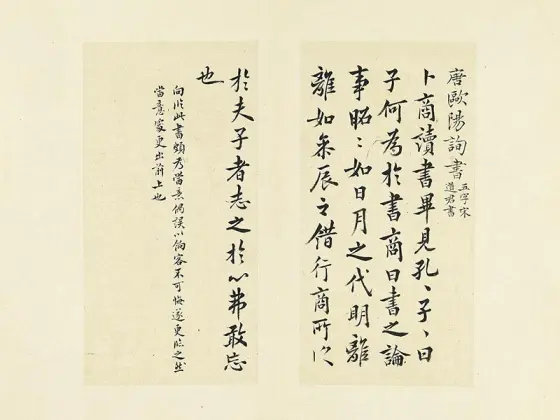 唐歐陽詢書
五字宋
道君書
卜商讀書畢見孔〻子〻曰
子何為於書商曰書之論
事昭〻如日月之代明離
離如參辰之錯行商所受
於夫子者志之於心弗敢忘
也
向臨此書頗為當意偶誤以餉客不可悔遂更臨之然
當意處更出前上也